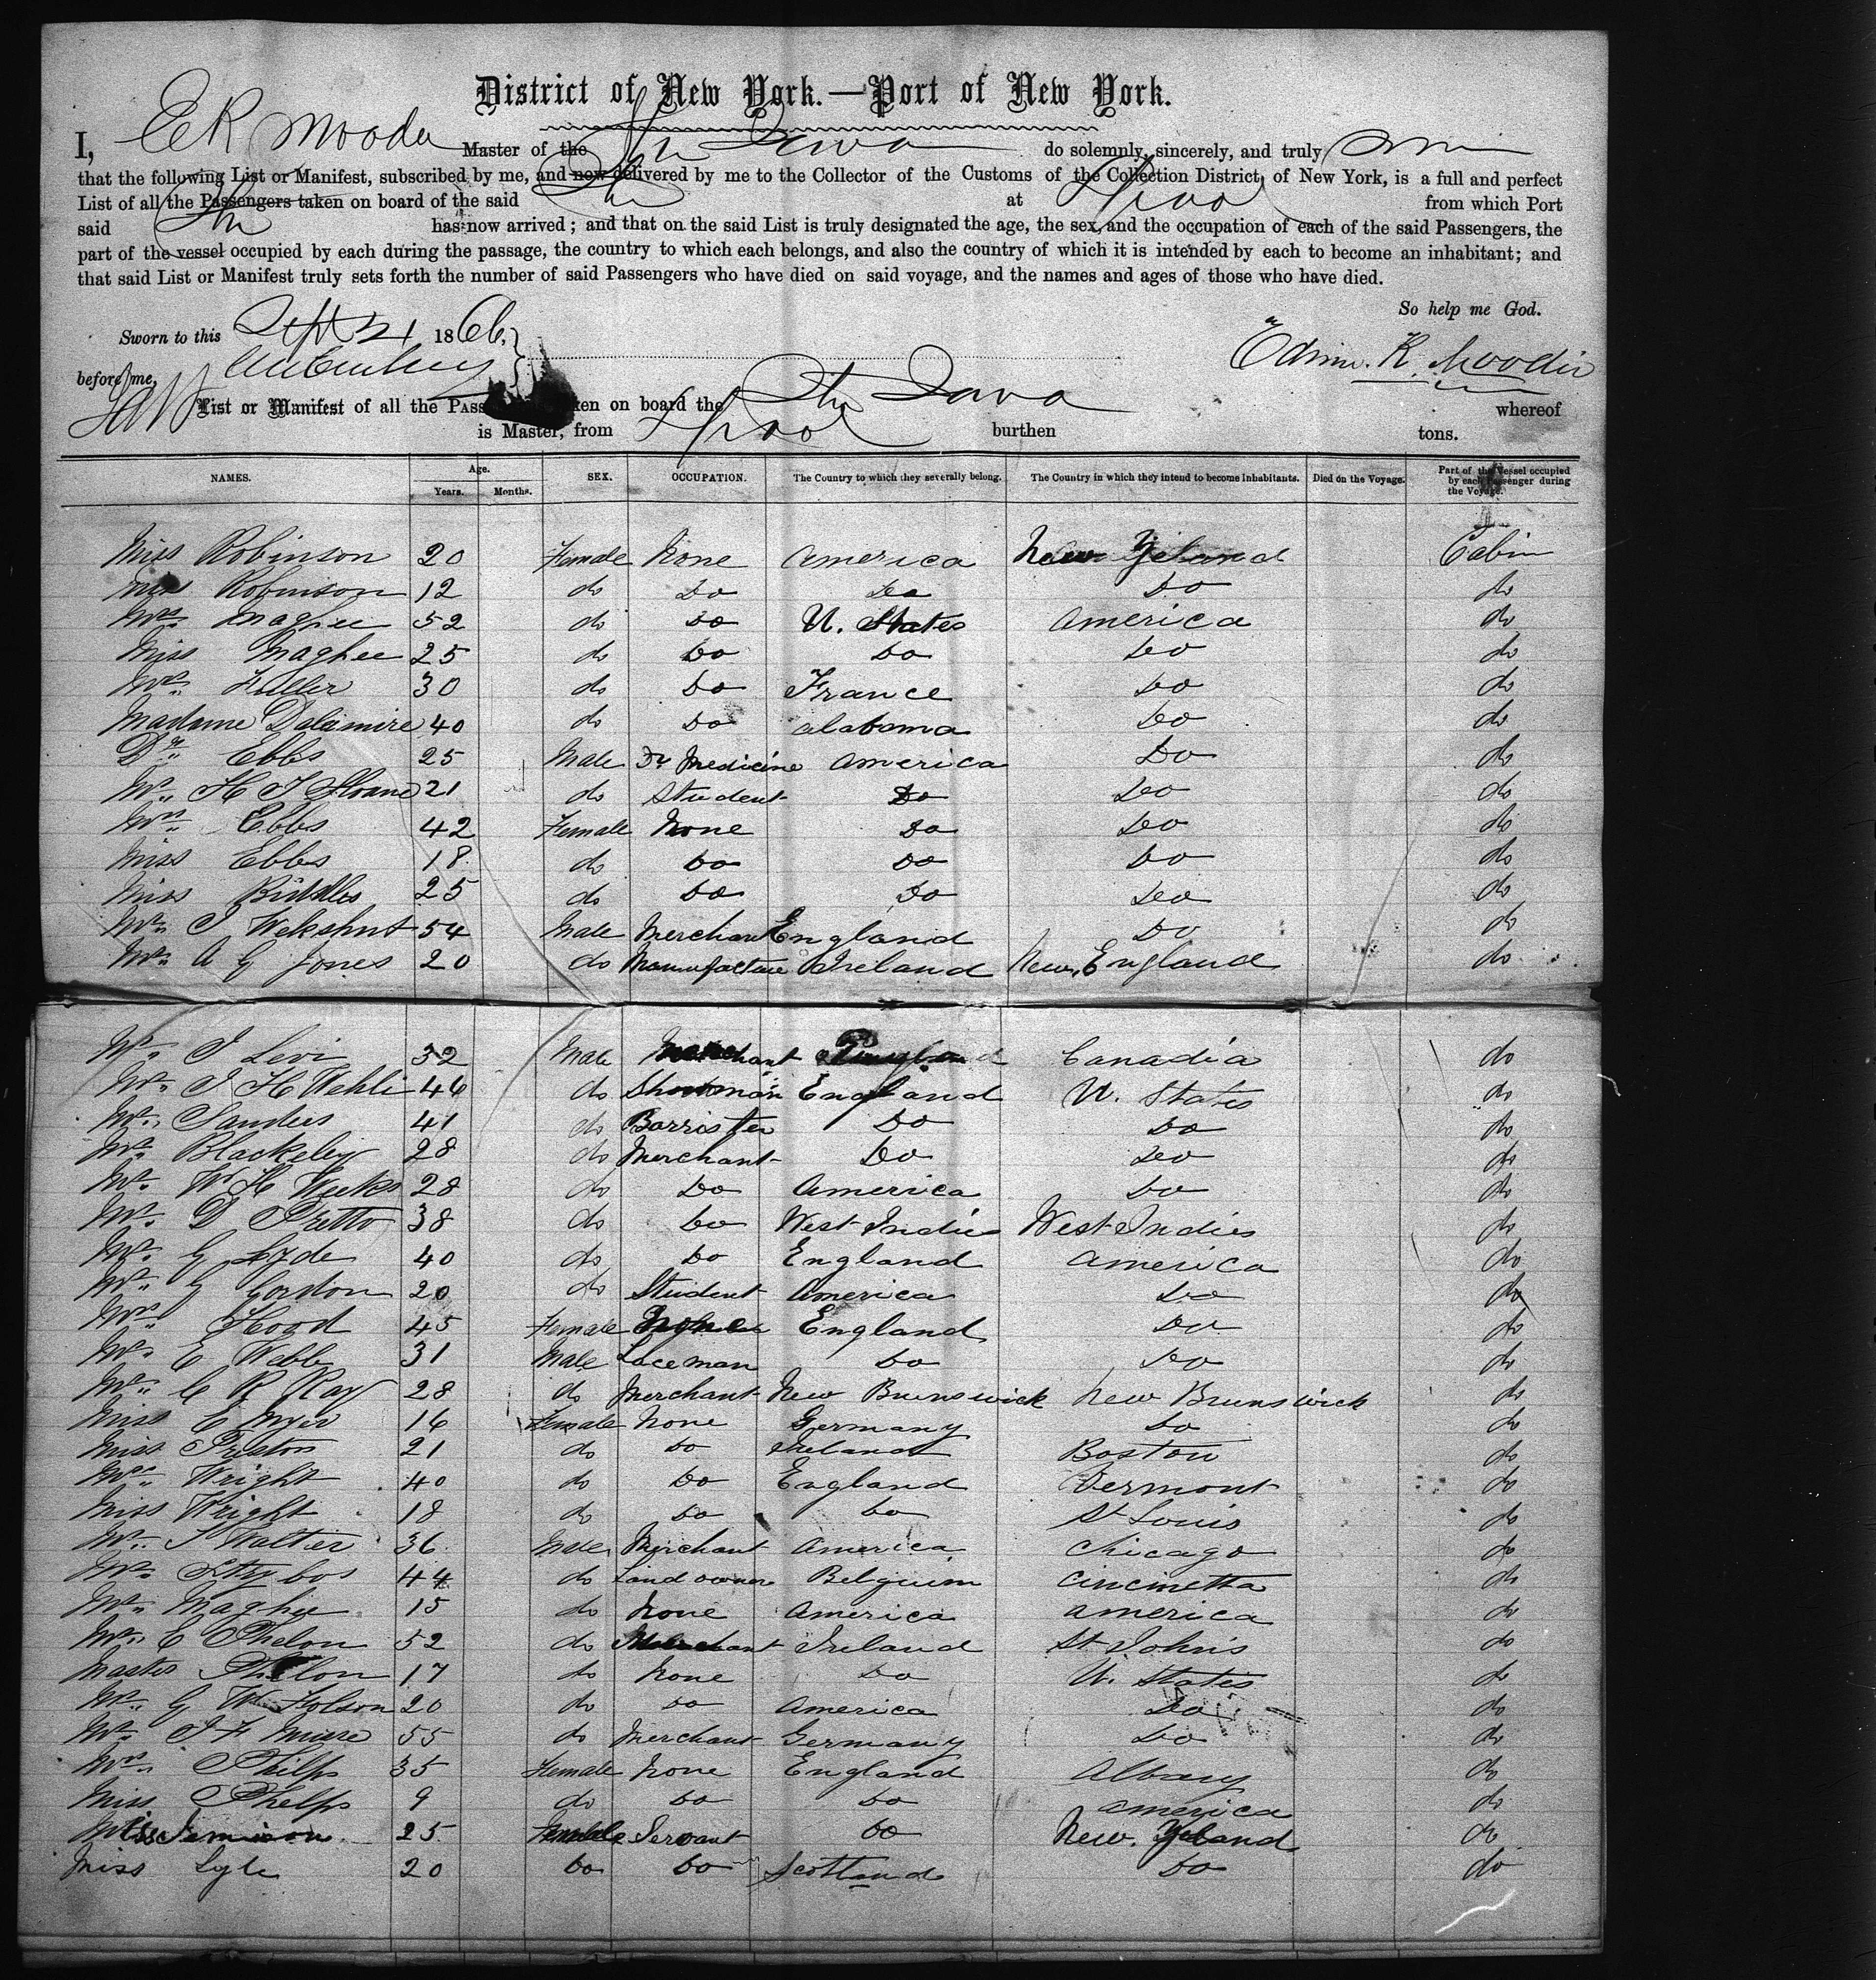 District of New York.—Port of New York.
I, E R Moodie Master of the Str Java do solemnly, sincerely, and truly
that the following List or Manifest, subscribed by me, and now delivered by me to the Collector of the Customs of the Collection District of New York, is a full and perfect
List of all the Passengers taken on board of the said Str at Lpool from which Port
said Str has now arrived; and that on the said List is truly designated the age, the sex, and the occupation of each of the said Passengers, the
part of the vessel occupied by each during the passage, the country to which each belongs, and also the country of which it is intended by each to become an inhabitant; and
that said List or Manifest truly sets forth the number of said Passengers who have died on said voyage, and the names and ages of those who have died.
So help me God.
Sworn to this Sept 21 1866,
before me, Edwin. R. Moodie
List or Manifest of all the Pass ken on board the Str Java whereof
is Master, from Lpool burthen tons.
NAMES. Age. Years. Months. SEX. OCCUPATION. The Country to which they severally belong. The Country in which they intend to become inhabitants. Died on the Voyage. Part of the Vessel occupied by each Passenger during the Voyage.
Miss Robinson 20 Female None America New Cabin
Robinson 12 do Do Do Do do
Mrs Maghee 52 do Do U. States America do
Miss Maghee 25 do Do Do Do do
Mrs Fuller 30 do Do France Do do
Madame Dalimire 40 do Do Alabama Do do
Dr Ebbs 25 Male Dr Medicine America Do do
Mr H Sloane 21 do Student Do Do do
Mrs Ebbs 42 Female None Do Do do
Miss Ebbs 18 do Do Do Do do
Miss Riddles 25 do Do Do Do do
Mr J 54 Male Merchant England Do do
Mr A G Jones 20 do Manufacture Ireland New England do
Mr J Levi 32 Male Merchant Canadia do
Mr J H Wehli 46 do Showman England U. States do
Mr Sanders 41 do Barrister Do Do do
Mr Blackeley 28 do Merchant Do Do do
Mr W H Weeks 28 do Do America Do do
Mr D Pretto 38 do Do West Indies West Indies do
Mr G Lyde 40 do Do England America do
Mr G Gordon 20 do Student America Do do
Mrs Hood 45 Female None England Do do
Mr E Webb 31 Male Laceman Do Do do
Mr C R Ray 28 do Merchant New Brunswick New Brunswick do
Miss E Myer 16 Female None Germany Do do
Miss Preston 21 do Do Ireland Boston do
Mrs Wright 40 do Do England Vermont do
Miss Wright 18 do Do Do St Louis do
Mr J Walter 36 Male Merchant America Chicago do
Mr Strybos 44 do Land owner Belguim Cincinetta do
Mr Maghee 15 do None America America do
Mr E Phelon 52 do Merchant Ireland St Johns do
Master Phelon 17 do None Do U. States do
Mr G W Folson 20 do Do America Do do
Mr J F Muire 55 do Merchant Germany Do do
Mrs Phelps 35 Female None England Albany do
Miss Phelps 9 do Do Do America do
Miss Jemison 25 Female Servant Do New. do
Miss Lyle 20 Do Do Scotland Do do